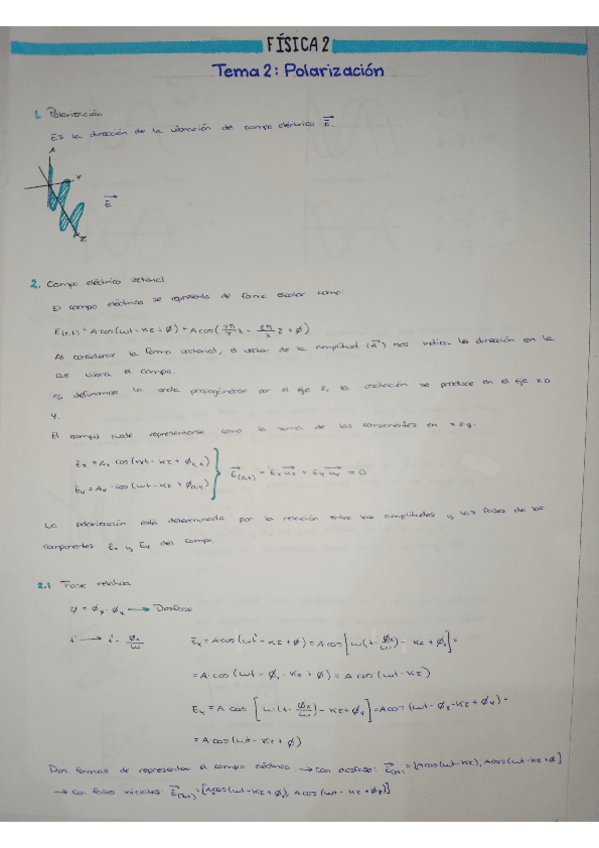 FÍSICA 2
Tema 2: Polarización
1. Polarización
Es la dirección de la vibración del campo eléctrico E⃗.
x
y
E⃗
z
2. Campo eléctrico vectorial
El campo eléctrico se representa de forma escalar como:
E(z,t) = A cos(ωt - Kz + φ) = A cos(2π/T t - 2π/λ z + φ)
Al considerar la forma vectorial, el vector de la amplitud (A⃗) nos indica la dirección en la
que vibra el campo.
Si definimos la onda propagándose por el eje z, la oscilación se produce en el eje x o
y.
El campo puede representarse como la suma de las componentes en x e y.
Ex = Ax cos(ωt - Kz + φ0,x)
Ey = Ay · cos(ωt - Kz + φ0,y)
E⃗(z,t) = Ex u⃗x + Ey u⃗y = 0
La polarización está determinada por la relación entre las amplitudes y las fases de las
componentes Ex y Ey del campo.
2.1 Fase relativa
φ = φx - φy → Desfase
t → t - φx/ω
Ex = A cos(ωt - Kz + φ) = A cos[ω(t - φx/ω) - Kz + φx] =
= A · cos(ωt - φx - Kz + φ) = A cos(ωt - Kz)
Ey = A cos[ω(t - φx/ω) - Kz + φy] = A cos(ωt - φx - Kz + φy) =
= A cos(ωt - Kz + φ)
Dos formas de representar el campo eléctrico: → Con desfase: E⃗(z,t) = [A cos(ωt - Kz), A cos(ωt - Kz + φ]
→ Con fases iniciales: E⃗(z,t) = [A cos(ωt - Kz + φx), A cos(ωt - Kz + φy)]